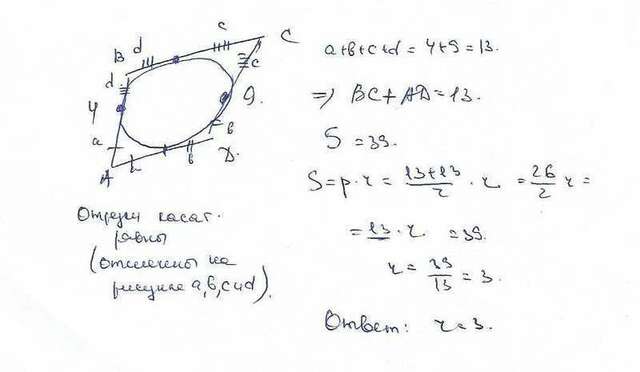 B d c C
d c
4 9.
a b
A a b D.
a+b+c+d = 4+9 = 13.
⇒ BC + AD = 13.
S = 39.
S = p · r = 13+13/2 · r = 26/2 r =
= 13 · r = 39.
r = 39/13 = 3.
Ответ: r = 3.
Отрезки касат.
равны
(отмечены на
рисунке a, b, c и d).